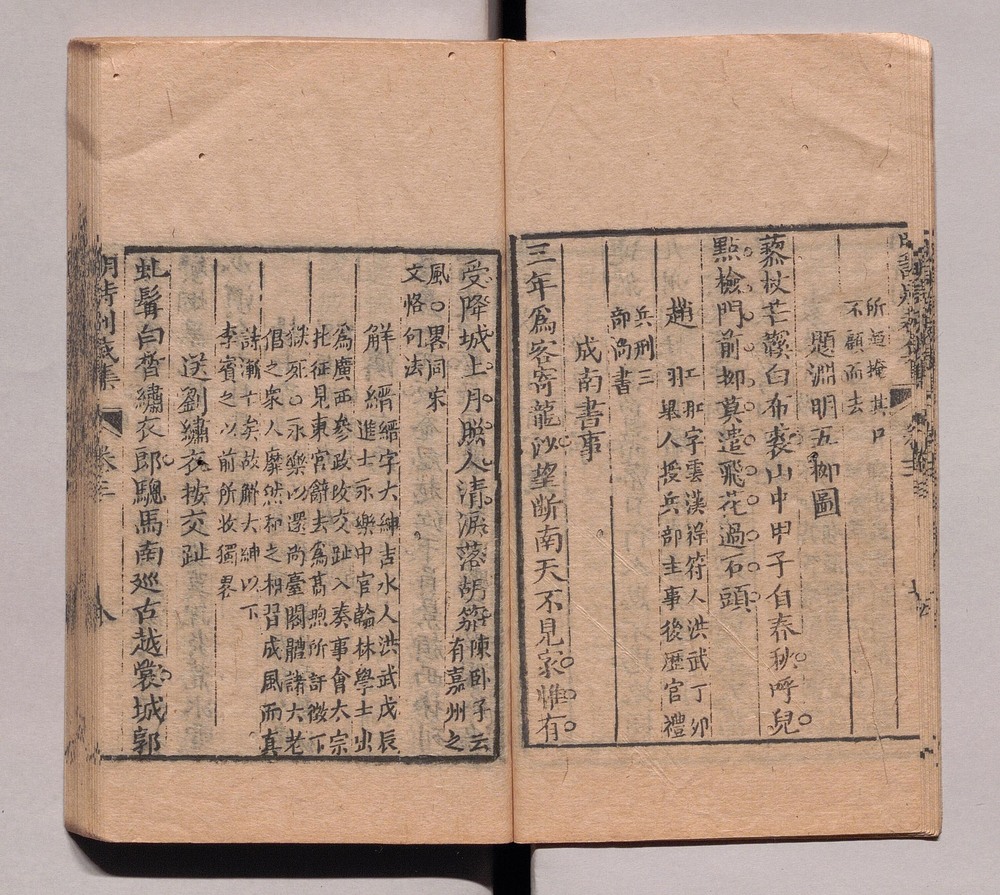 所逅掩其口
不顧而去
題淵明五柳圖
藜杖芒鞵白布裘山中甲子自春秋呼兒
點檢門前柳莫遣飛花過石頭
趙 羾 羾字雲漢祥符人洪武丁卯
舉人授兵部主事後歷官禮
兵刑三
部尚書
戍南書事
三年爲客寄龍沙望断南天不見家惟有
受降城上月照人清淚落胡笳 陳卧子云
有嘉州之
風○畧同宋
文恪句法
解 縉 縉字大紳吉水人洪武戊辰
進士永樂中官翰林學士出
爲廣西參政改交趾入奏事會大宗
北征見東宮辭去爲高煦所訐徵下
獄死○永樂以還尚臺閣體諸大老
倡之衆人靡然和之相習成風而真
詩漸亡矣故解大紳以下
李賓之以前所收獨畧
送劉繡衣按交趾
虬髯白皙繡衣郎驄馬南廵古越裳城郭
明詩別裁集 卷三 八